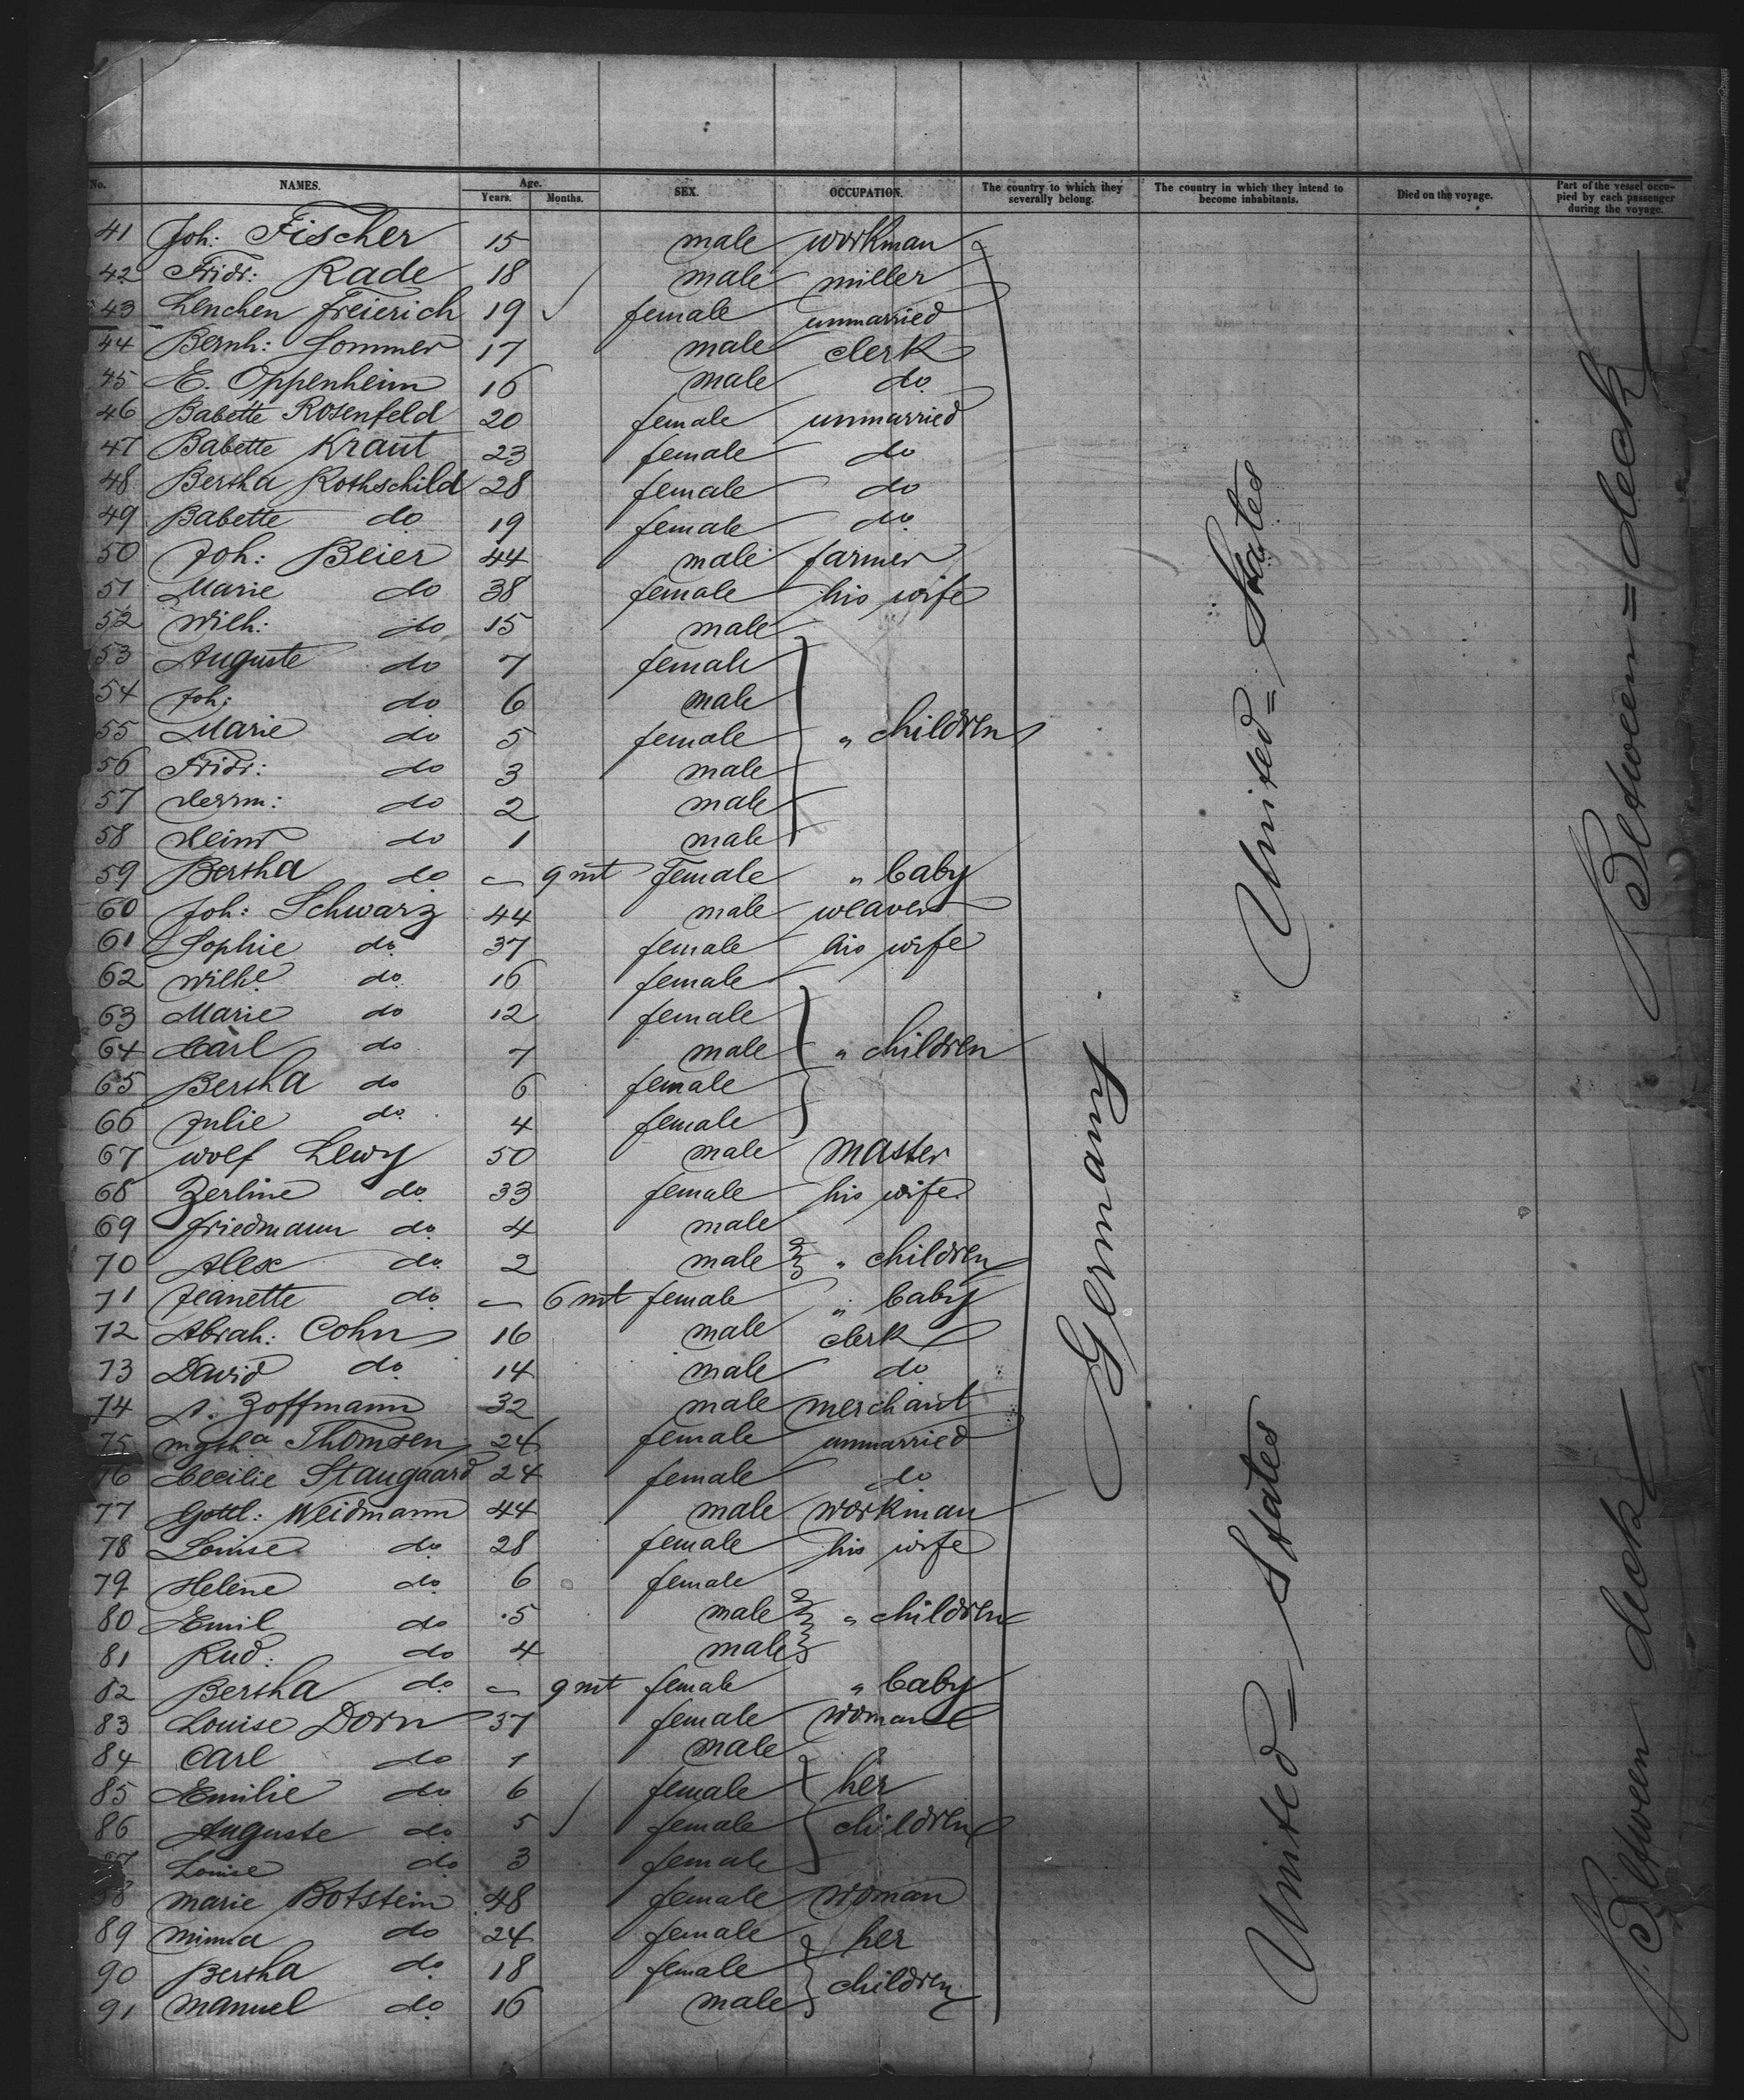 No. NAMES. Age. Years. Months. SEX. OCCUPATION. The country to which they severally belong. The country in which they intend to become inhabitants. Died on the voyage. Part of the vessel occupied by each passenger during the voyage.
41 Joh: Fischer 15 male workman
42 Fridr: Rade 18 male miller
43 Lenchen Freierich 19 female unmarried
44 Bernh: Sommer 17 male clerk
45 E. Oppenheim 16 male do
46 Babette Rosenfeld 20 female unmarried
47 Babette Kraut 23 female do
48 Bertha Rothschild 28 female do
49 Babette do 19 female do
50 Joh: Beier 44 male farmer
51 Marie do 38 female his wife
52 Wilh: do 15 male
53 Auguste do 7 female
54 Joh: do 6 male
55 Marie do 5 female " children
56 Fridr: do 3 male
57 Herrm: do 2 male
58 Heinr do 1 male
59 Bertha do — 9 mt Female " baby
60 Joh: Schwarz 44 male weaver
61 Sophie do 37 female his wife
62 Wilhe do 16 female
63 Marie do 12 female
64 Carl do 7 male " children
65 Bertha do 6 female
66 Julie do 4 female
67 Wolf Lewy 50 male master
68 Zerline do 33 female his wife
69 Friedmann do 4 male
70 Alex do 2 male " children
71 Jeanette do — 6 mt female " baby
72 Abrah: Cohn 16 male clerk
73 David do 14 male do
74 A. Zoffmann 32 male merchant
75 Thomsen 24 female unmarried
76 Cecilie Staugaard 24 female do
77 Gottl: Weidmann 44 male workman
78 Louise do 28 female his wife
79 Helene do 6 female
80 Emil do 5 male " children
81 Rud: do 4 male
82 Bertha do — 9 mt female " baby
83 Louise Dorn 37 female woman
84 Carl do 7 male
85 Emilie do 6 female her
86 Auguste do 5 female children
87 Louise do 3 female
88 Marie Botstein 48 female woman
89 Minna do 24 female her
90 Bertha do 18 female children
91 Manuel do 16 male
Germany
United = States
United = States
Between = deck
Between deck